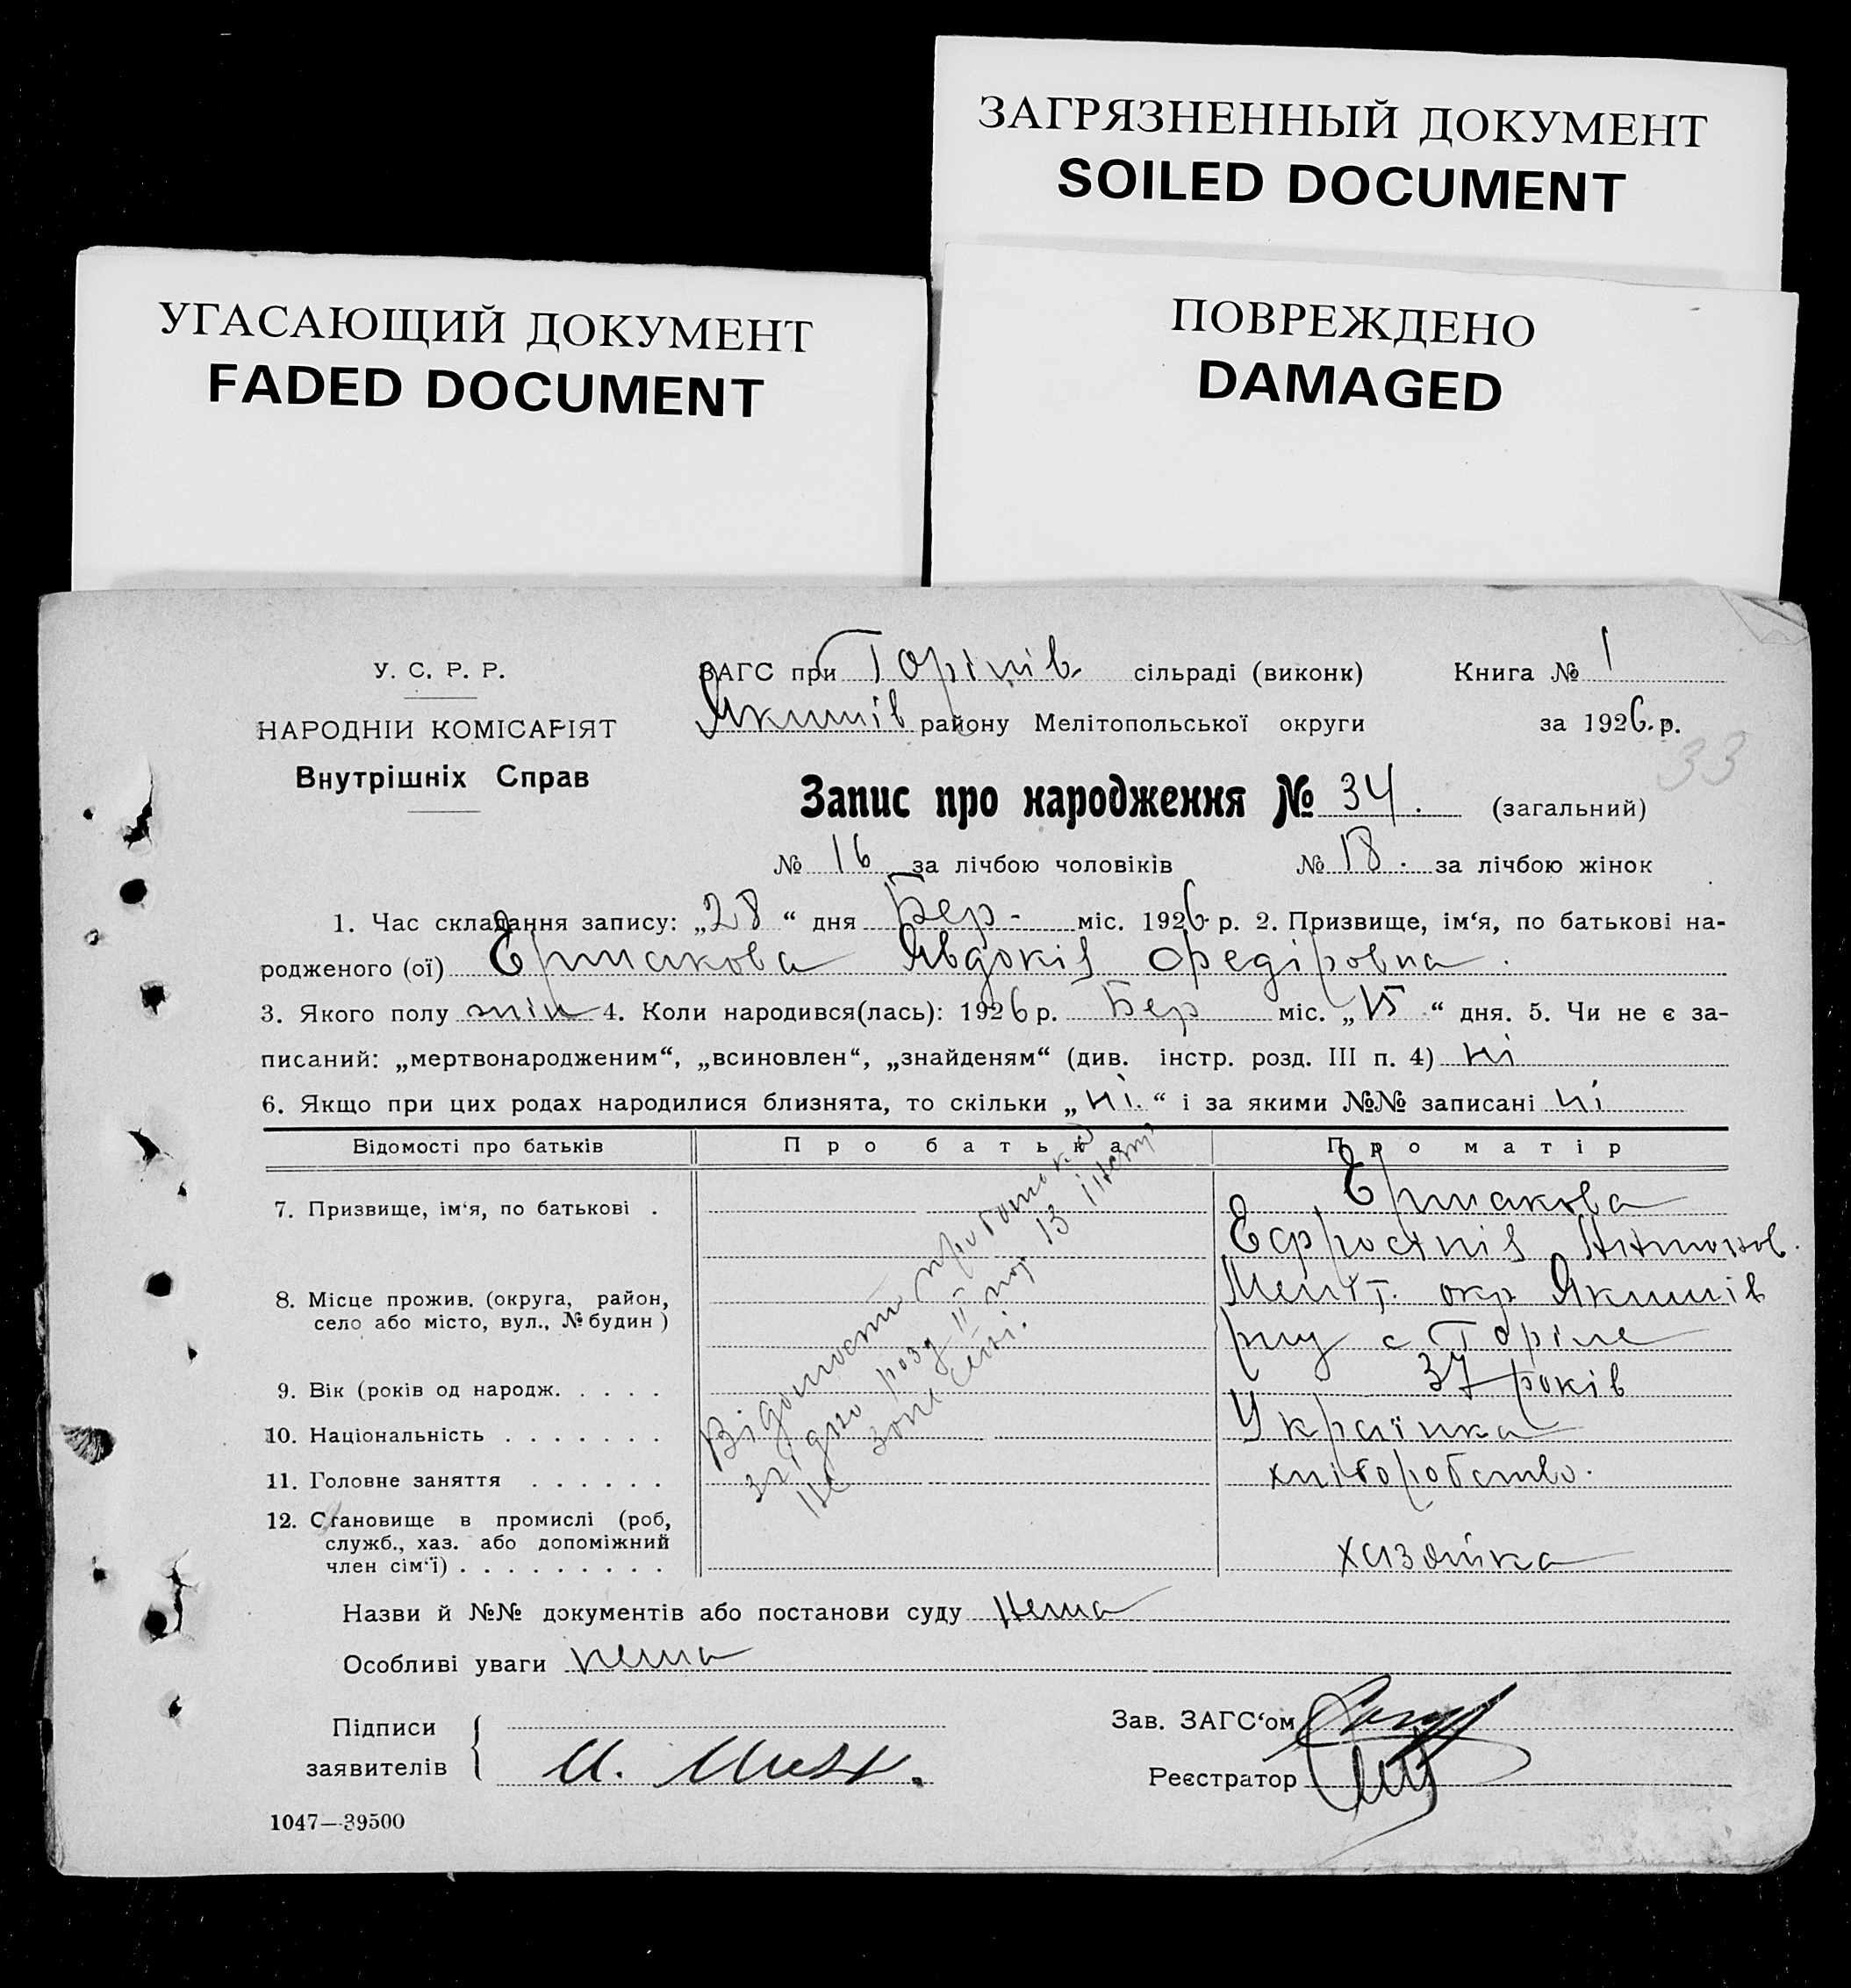 ЗАГРЯЗНЕННЫЙ ДОКУМЕНТ
SOILED DOCUMENT
УГАСАЮЩИЙ ДОКУМЕНТ
FADED DOCUMENT
ПОВРЕЖДЕНО
DAMAGED
У. С. Р. Р.
НАРОДНІЙ КОМІСАРІЯТ
Внутрішніх Справ
ЗАГС при Горілів сільраді (виконк) Книга № 1
Якимів району Мелітопольської округи за 1926. р.
33
Запис про народження № 34. (загальний)
№ 16 за лічбою чоловіків № 18. за лічбою жінок
1. Час складання запису: „28“ дня Бер- міс. 1926 р. 2. Призвище, ім‘я, по батькові на-
родженого (ої) Ермакова Явдокія Федіровна.
3. Якого полу жін 4. Коли народився(лась): 1926 р. Бер міс. „15“ дня. 5. Чи не є за-
писаний: „мертвонародженим“, „всиновлен“, „знайденям“ (див. інстр. розд. III п. 4) ні
6. Якщо при цих родах народилися близнята, то скільки „ні.“ і за якими №№ записані ні
Відомості про батьків Про батька Про матір
7. Призвище, ім‘я, по батькові . Ермакова
Єфростнія Антонов.
8. Місце прожив. (округа, район, Меліт. окр Якимів
село або місто, вул., № будин) рну с Горіле
9. Вік (років од народж. . . . . 37 років
10. Національність . . . . . . . Українка
11. Головне заняття . . . . . . хліборобство.
12. Становище в промислі (роб,
служб., хаз. або допоміжний
член сім‘ї) . . . . . . . . . хазяйка
Відомости про батька
згідно розд II пар 13 Інстр
не занесені.
Назви й №№ документів або постанови суду нема
Особливі уваги нема
Підписи
заявителів
Зав. ЗАГС‘ом
Реєстратор
1047—39500